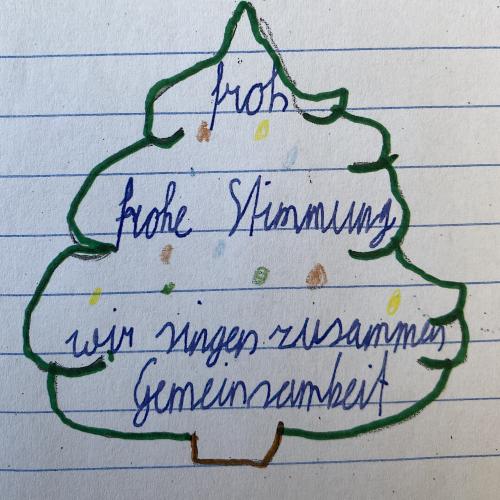 froh
frohe Stimmung
wir singen zusammen
Gemeinsamkeit